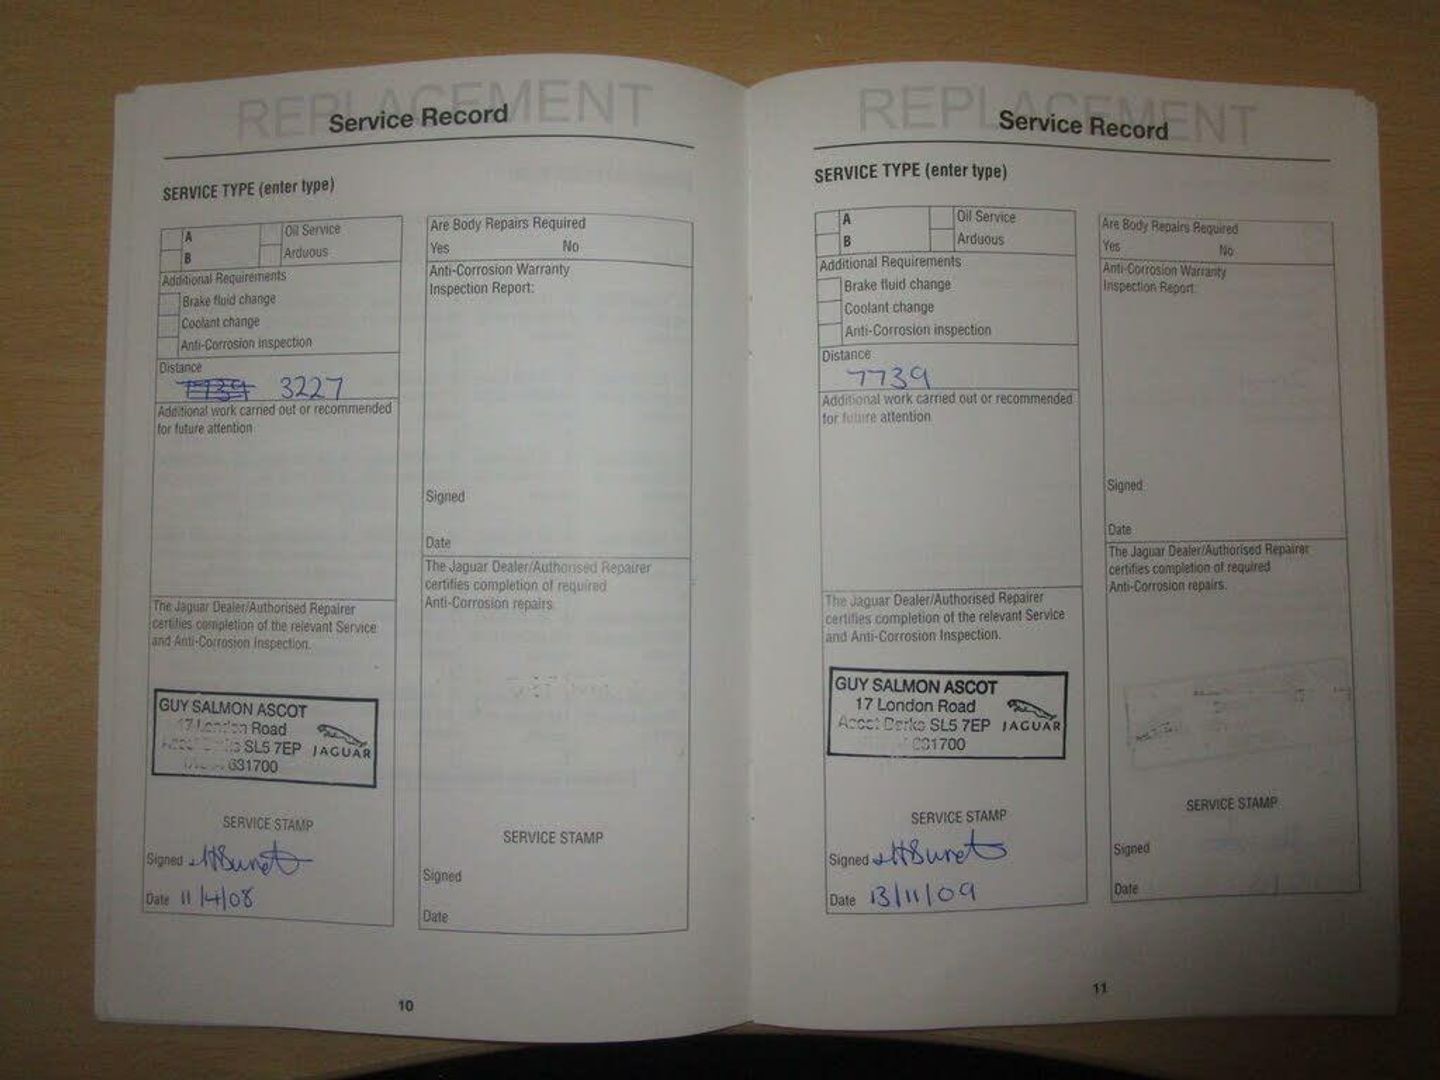 REPLACEMENT
Service Record
SERVICE TYPE (enter type)
A
Oil Service
B
Arduous
Additional Requirements
Brake fluid change
Coolant change
Anti-Corrosion inspection
Distance
7739 3227
Additional work carried out or recommended
for future attention
The Jaguar Dealer/Authorised Repairer
certifies completion of the relevant Service
and Anti-Corrosion Inspection.
GUY SALMON ASCOT
17 London Road
SL5 7EP
JAGUAR
631700
SERVICE STAMP
Signed
Date 11/4/08
Are Body Repairs Required
Yes No
Anti-Corrosion Warranty
Inspection Report:
Signed
Date
The Jaguar Dealer/Authorised Repairer
certifies completion of required
Anti-Corrosion repairs.
SERVICE STAMP
Signed
Date
10
REPLACEMENT
Service Record
SERVICE TYPE (enter type)
A
Oil Service
B
Arduous
Additional Requirements
Brake fluid change
Coolant change
Anti-Corrosion inspection
Distance
7739
Additional work carried out or recommended
for future attention
The Jaguar Dealer/Authorised Repairer
certifies completion of the relevant Service
and Anti-Corrosion Inspection.
GUY SALMON ASCOT
17 London Road
Ascot Berks SL5 7EP
JAGUAR
631700
SERVICE STAMP
Signed
Date 13/11/09
Are Body Repairs Required
Yes No
Anti-Corrosion Warranty
Inspection Report:
Signed
Date
The Jaguar Dealer/Authorised Repairer
certifies completion of required
Anti-Corrosion repairs.
SERVICE STAMP
Signed
Date
11